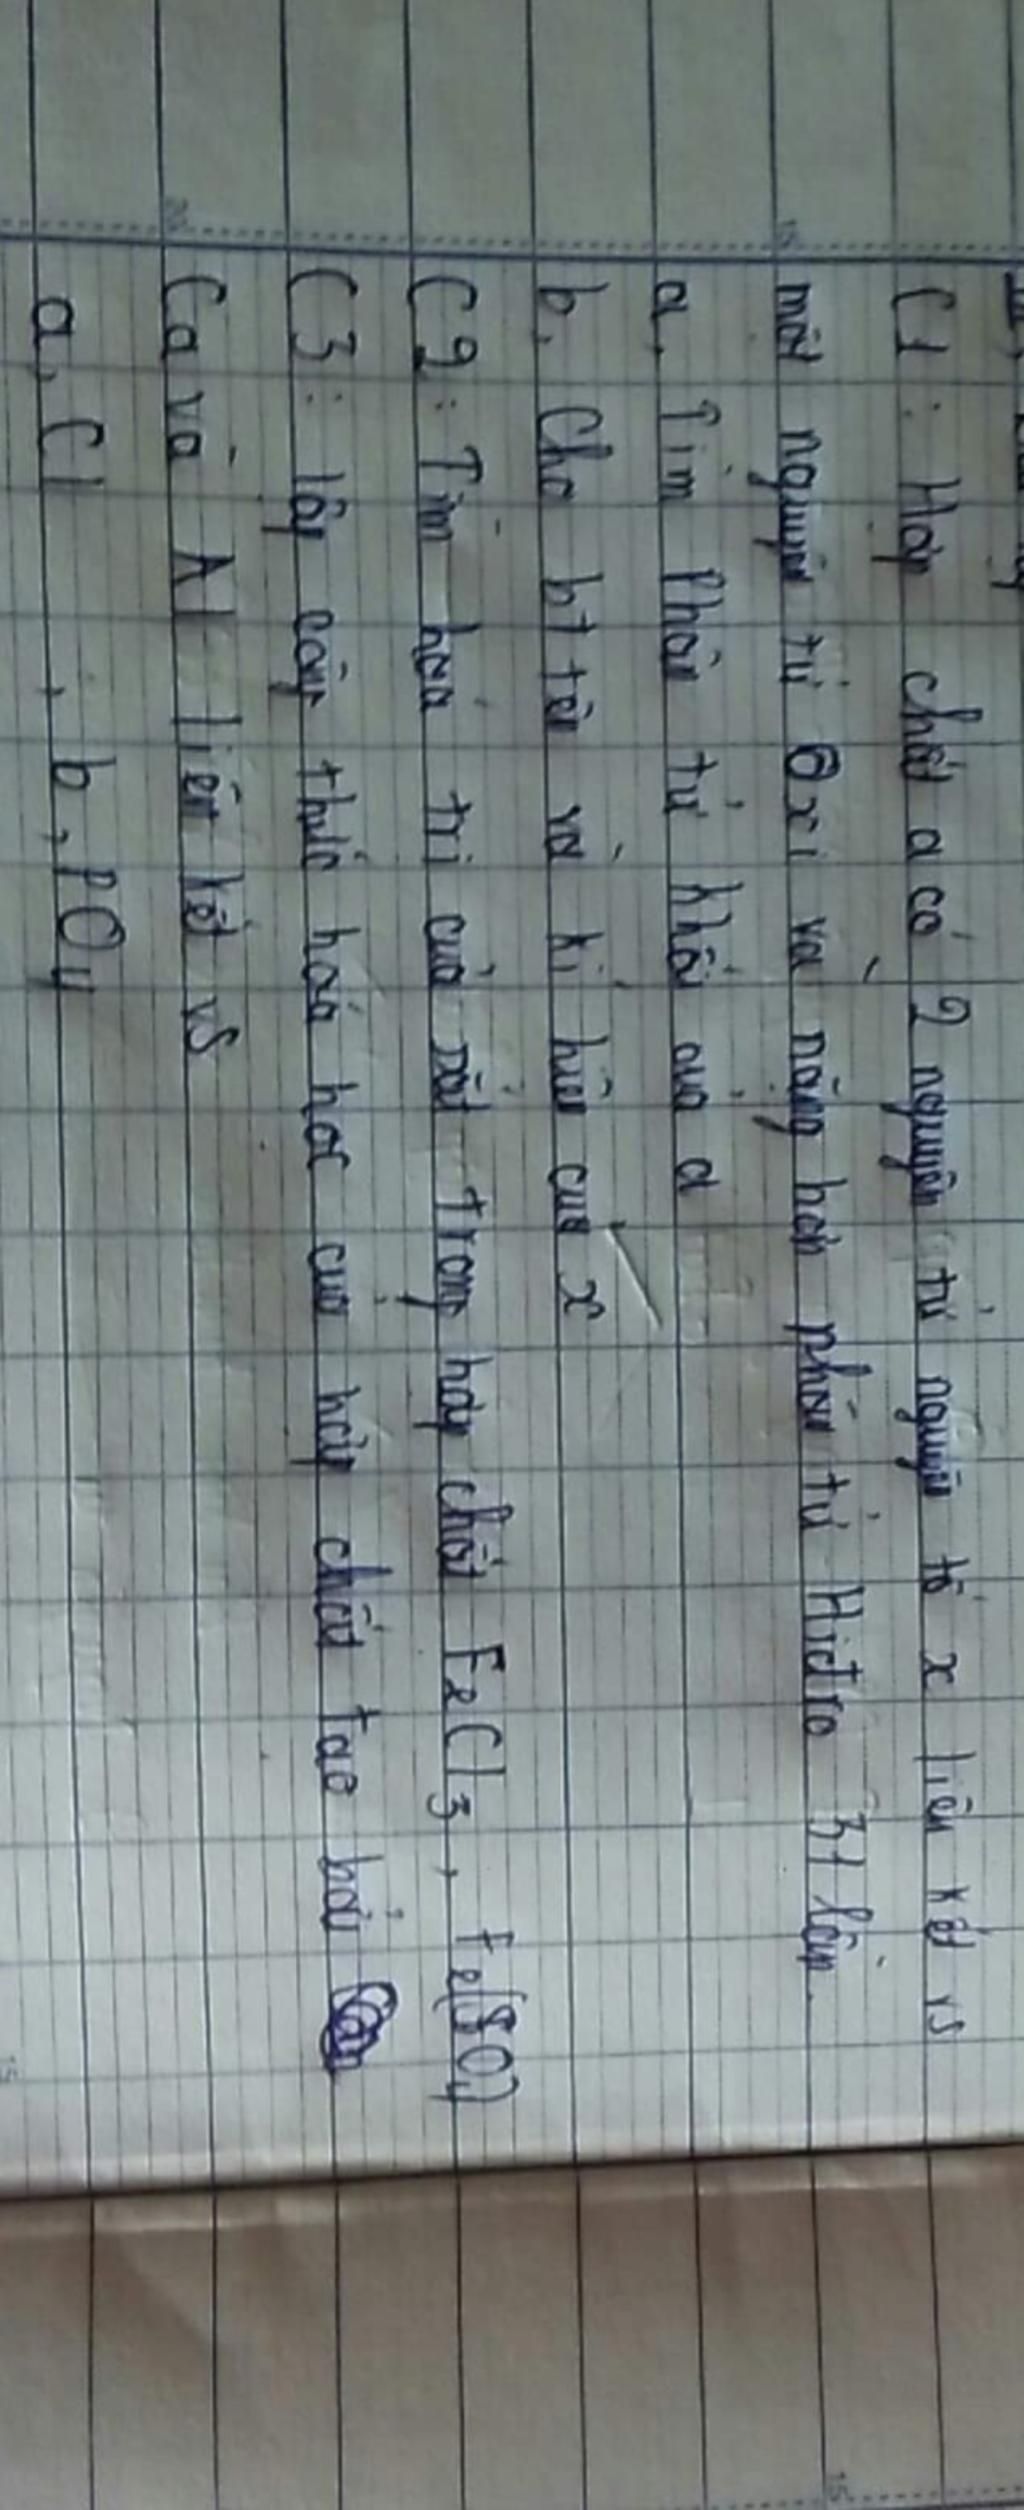 C1: Hợp chất a có 2 nguyên tử nguyên tố x liên kết vs
một nguyên tử Oxi và nặng hơn phân tử Hiđro 31 lần.
a, Tìm Phân tử khối của a
b, Cho bt tên và kí hiệu của x
C2: Tìm hoá trị của sắt trong hợp chất FeCl3, Fe(SO4)
C3: lập công thức hoá học của hợp chất tạo bởi
Ca và Al liên kết vs
a, Cl , b, PO4